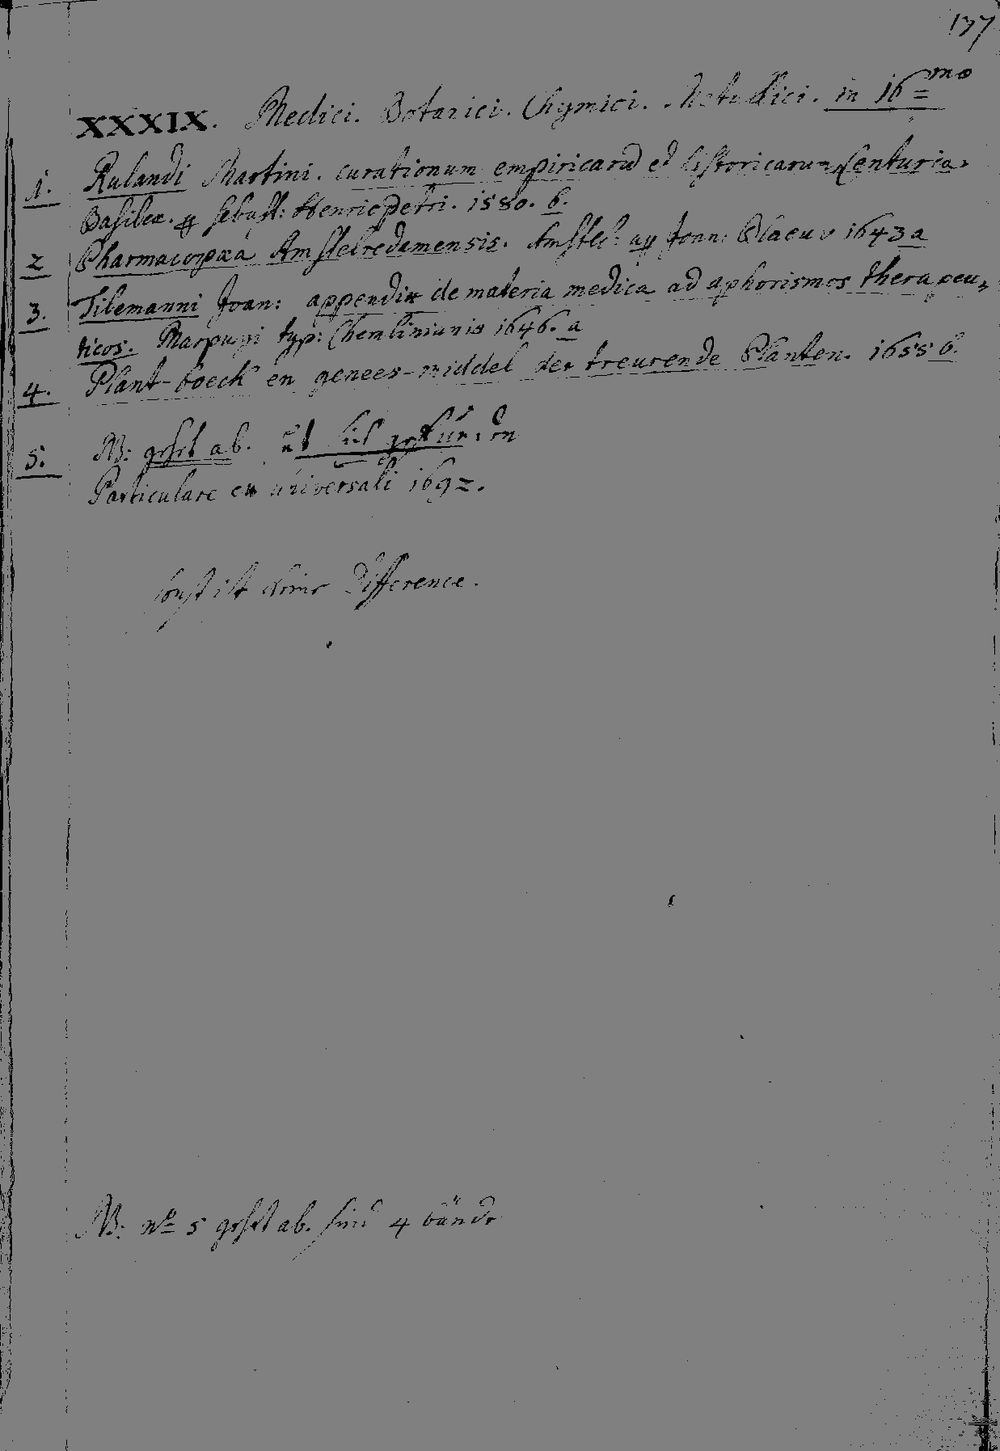 177
XXXIX. Medici. Botanici. Chymici. Metallici. in 16=mo
1. Rulandi Martini. curationum empiricarū et historicarum Centuria.
Basileæ. p Sebast: Henricpetri. 1580. b.
2 Pharmacopæa Amstelredamensis. Amstel: ap Joan: Blaeuv 1643 a
3. Tilemanni Joan: appendix de materia medica ad aphorismos therapeu-
ticos. Marpurgi typ: Chemlinianis 1646. a
4. Plant-boeck en genees-middel der treurende Planten. 1655 b.
5. NB: gehet ab.
Particulare en universali 1692.
sonst ist keine Difference.
NB: No 5 gehet ab. sind 4 bände